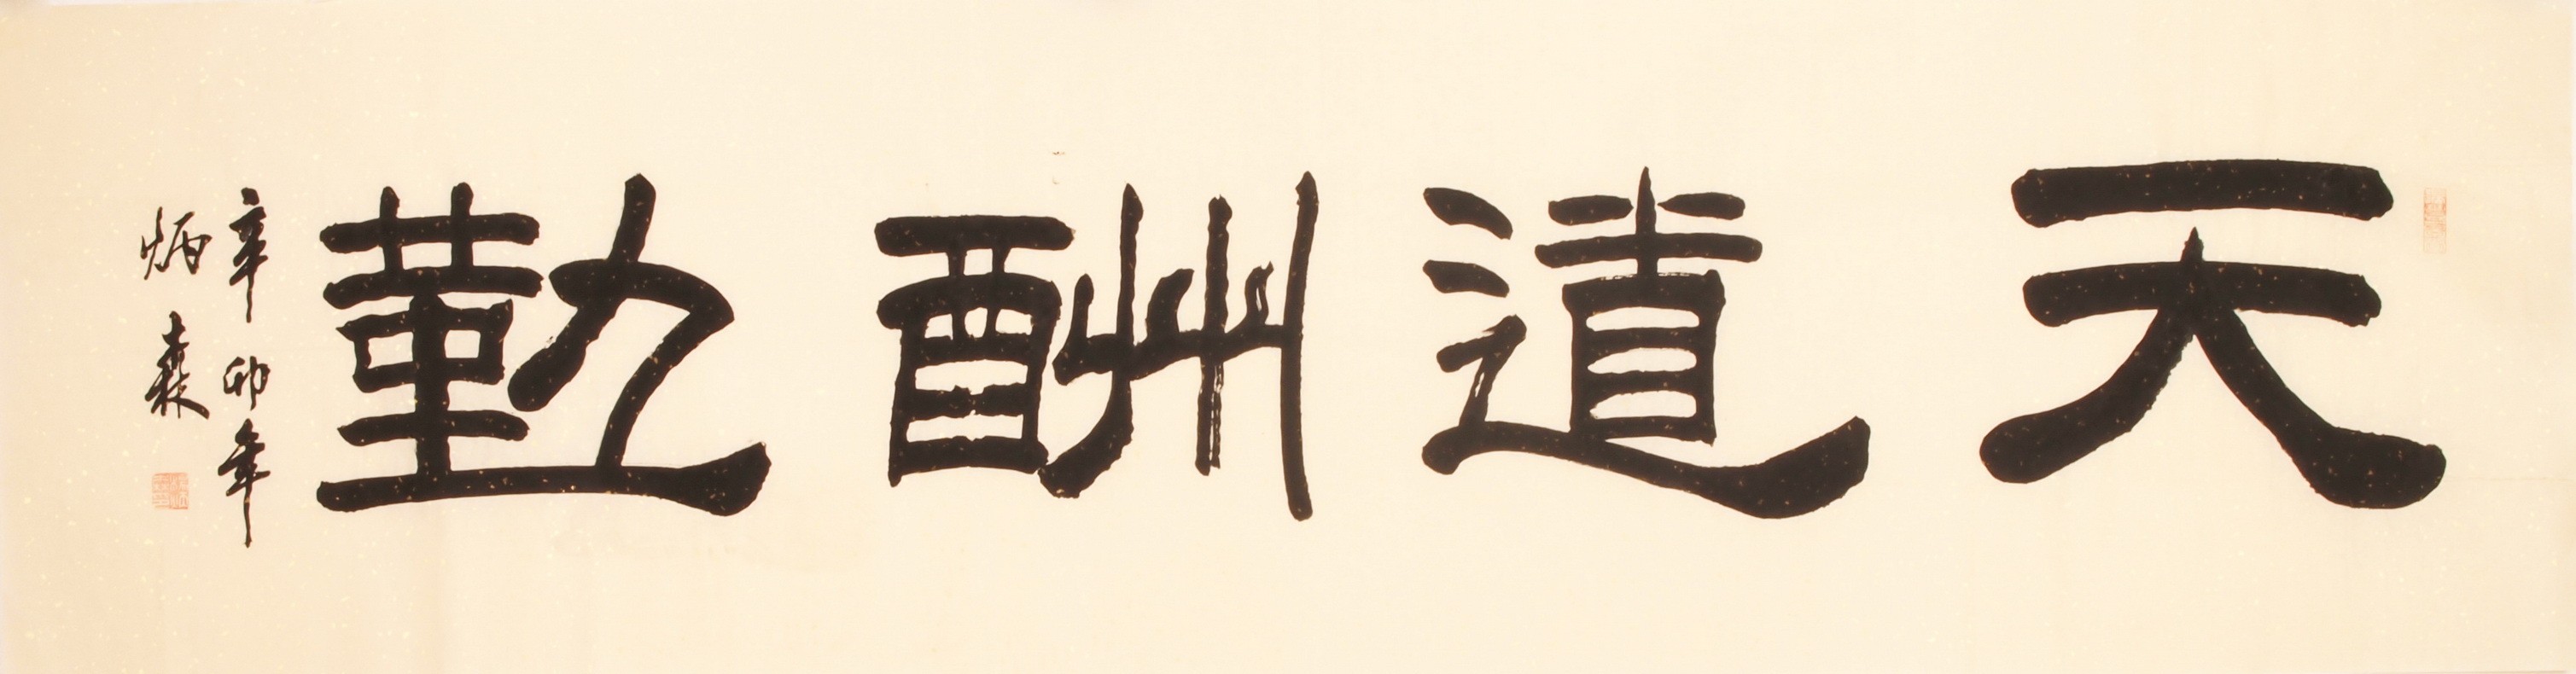 天道酬勤
辛卯年
炳森